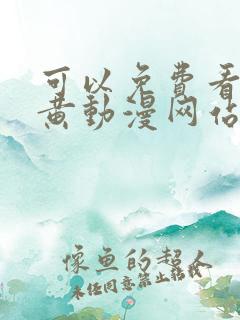 可以免费看
黄動漫网佔
像鱼的超人
未经同意禁止转载